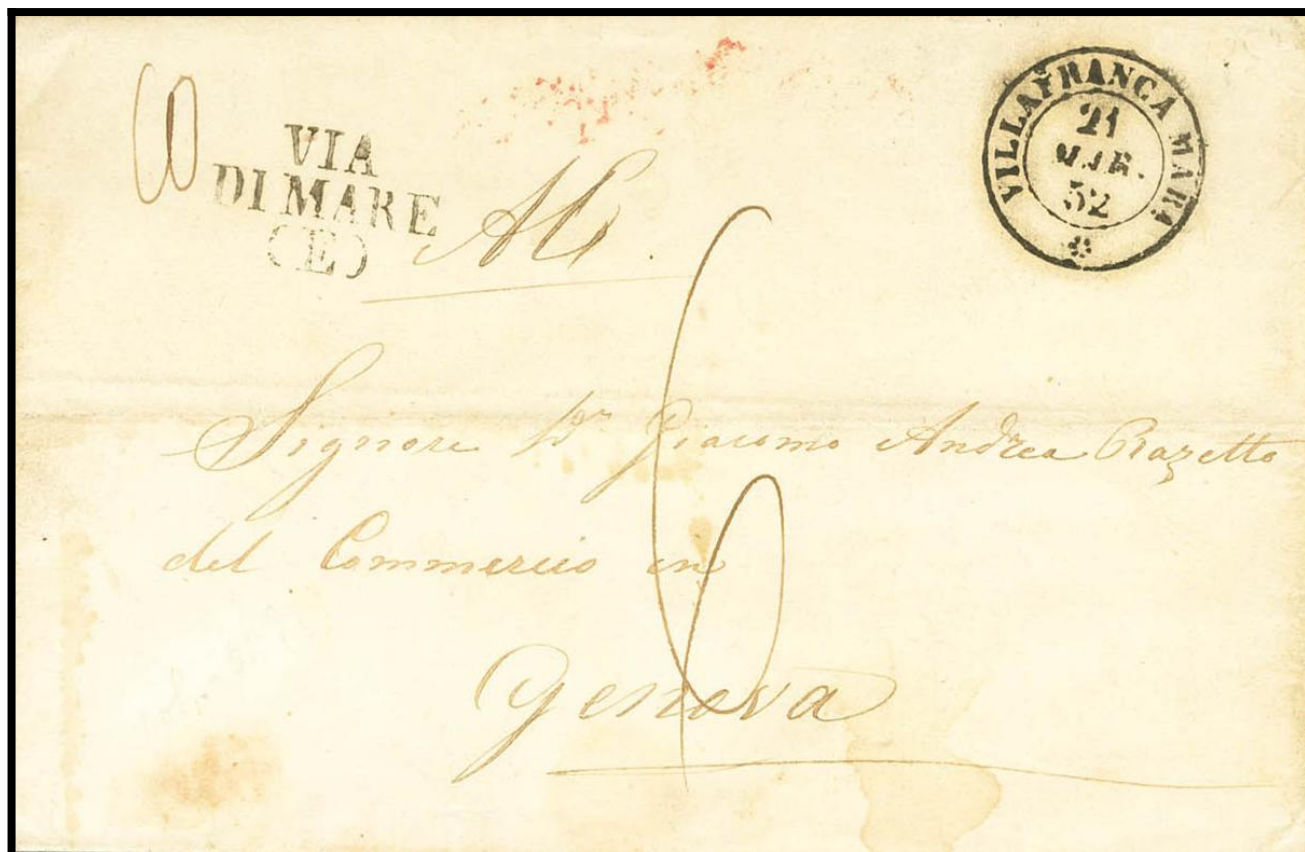 VIA
DI MARE
(E)
VILLAFRANCA MAR.
21
MAR.
52
Al
Signore Dn Giacomo Andrea Razetto
del Commercio in
Genova
6